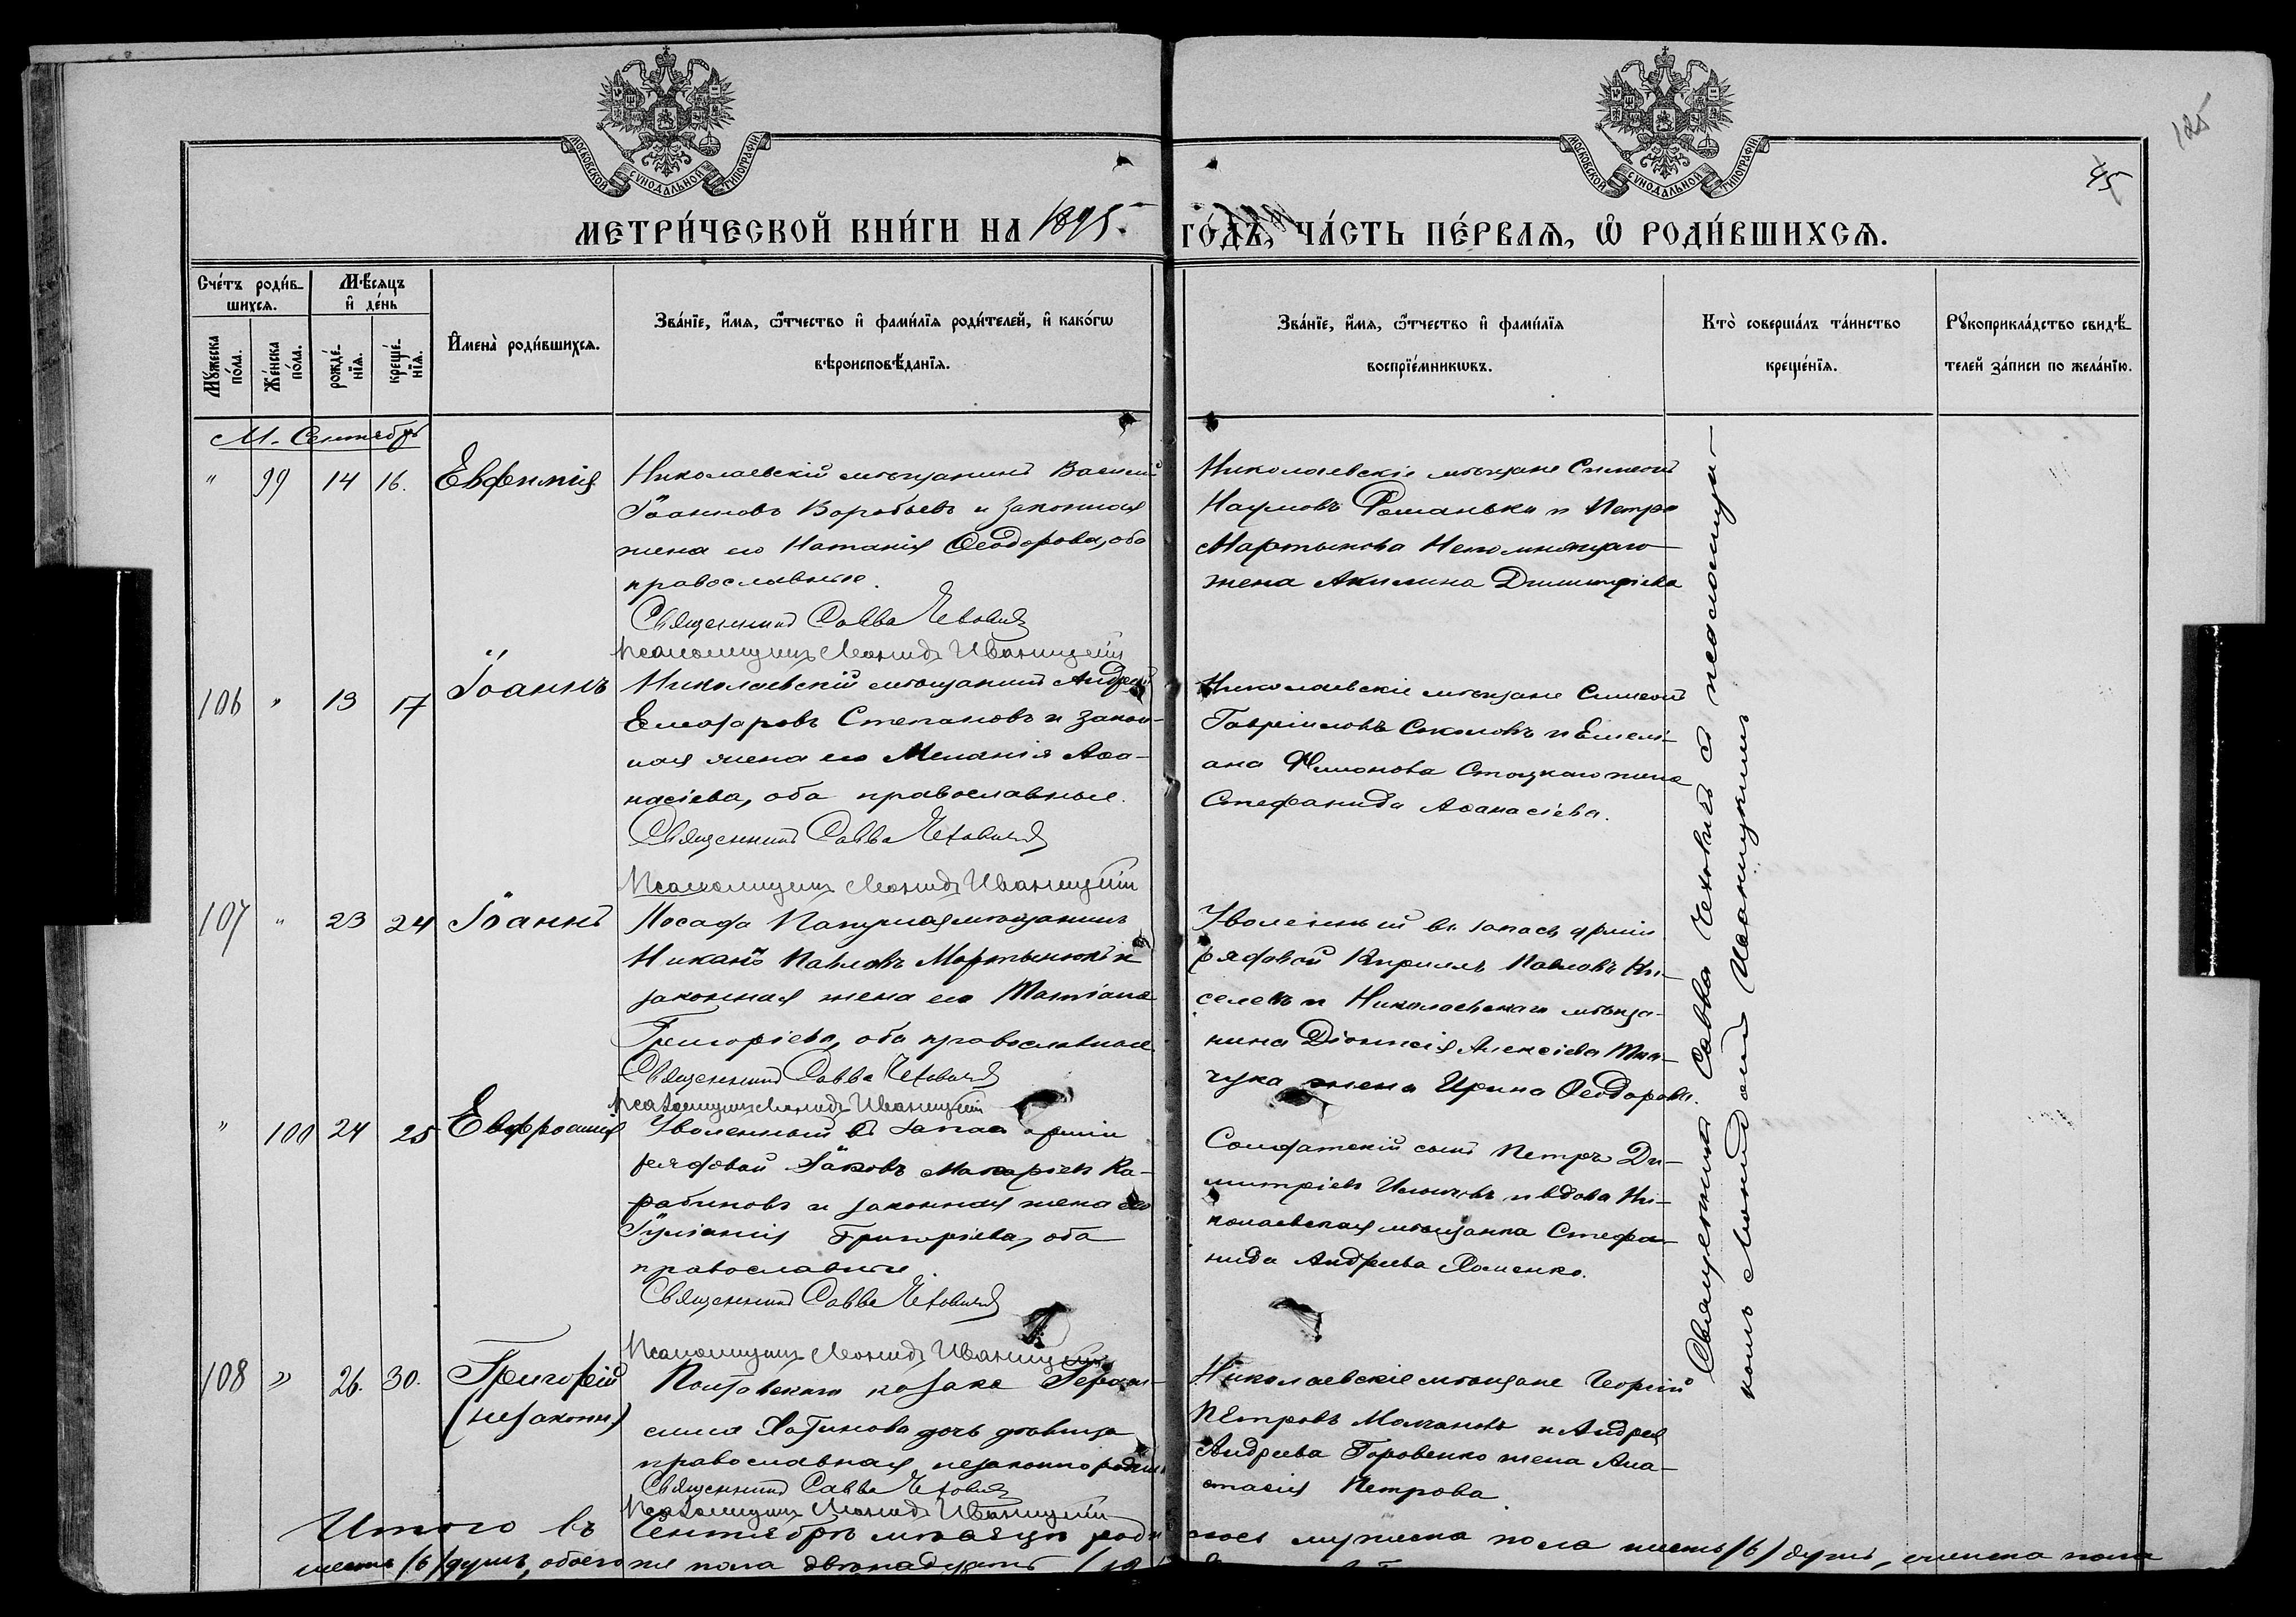 125
45
МОСКОВСКОЙ СѴНОДАЛЬНОЙ ТИПОГРАФІИ
МОСКОВСКОЙ СѴНОДАЛЬНОЙ ТИПОГРАФІИ
МЕТРИ́ЧЕСКОЙ КНИ́ГИ НА 1895. ГО́ДЪ, ЧА́СТЬ ПЕ́РВАѦ, Ѡ҆ РОДИ́ВШИХСѦ.
Сче́тъ роди́в-
шихсѧ.
Мѣ́сѧцъ
и҆ де́нь
Мꙋ́жеска
по́ла.
Же́нска
по́ла.
рожде́-
нїѧ.
креще́-
нїѧ.
И҆мена̀ роди́вшихсѧ.
Зва́нїе, и҆́мѧ, ѻ҆́тчество и҆ фами́лїѧ роди́телей, и҆ како́гѡ
вѣроисповѣ́данїѧ.
Зва́нїе, и҆́мѧ, ѻ҆́тчество и҆ фами́лїѧ
воспрїе́мникѡвъ.
Кто̀ соверша́лъ та́инство
креще́нїѧ.
Рꙋкоприкла́дство свидѣ́-
телей за́писи по жела́нїю.
М. Сентябрь
" 99 14 16. Евфимія
Николаевскій мѣщанинъ Василій
Іоанновъ Воробьевъ и законная
жена его Наталія Ѳеодорова, оба
православные.
Священникъ Савва Чеховичъ
Псаломщикъ Леонидъ Иваницкій
Николаевскіе мѣщане Симеонъ
Наумовъ Романько и Петра
Мартынова Непомнящаго
жена Акилина Димитріева
106 " 13 17 Іоаннъ
Николаевскій мѣщанинъ Андрей
Елеазаровъ Степановъ и закон-
ная жена его Меланія Аѳа-
насіева, оба православные.
Священникъ Савва Чеховичъ
Псаломщикъ Леонидъ Иваницкій
Николаевскіе мѣщане Симеонъ
Гавріиловъ Соколовъ и Емелі-
ана Филонова Стоцкаго жена
Стефанида Аѳанасіева.
107 " 23 24 Іоаннъ
Посада мѣщанинъ
Павловъ Мартынюкъ и
законная жена его Татіана
Григоріева, оба православные
Священникъ Савва Чеховичъ
Псаломщикъ Леонидъ Иваницкій
Уволенный въ запасъ арміи
рядовой Кириллъ Павловъ Ки-
селевъ и Николаевскаго мѣща-
нина Діонисія Алексіева Тка-
чука жена Ирина Ѳеодорова.
" 100 24 25 Евфросинія
Уволенный въ запасъ арміи
рядовой Іаковъ Макаріевъ Ка-
рабиновъ и законная жена его
Іуліанія Григоріева, оба
православные.
Священникъ Савва Чеховичъ
Псаломщикъ Леонидъ Иваницкій
Солдатскій сынъ Петръ Ди-
митріевъ и вдова Ни-
колаевская мѣщанка Стефа-
нида Андреева Хоменко.
108 " 26. 30. Григорій
(незаконн.)
Полтавскаго козака Гераси-
сима дочь дѣвица
православная, незаконнорожд.
Священникъ Савва Чеховичъ
Псаломщикъ Леонидъ Иваницкій
Николаевскіе мѣщане Георгій
Петровъ Молчановъ и Андрея
Андреева Горовенко жена Ана-
стасія Петрова
Священникъ Савва Чеховичъ съ псаломщи-
комъ Леонидомъ Иваницкимъ
Итого въ Сентябрѣ мѣсяцѣ роди лось мужеска пола шесть /6/ душъ, женска пола
шесть /6/ душъ, обоего же пола двѣнадцать /12